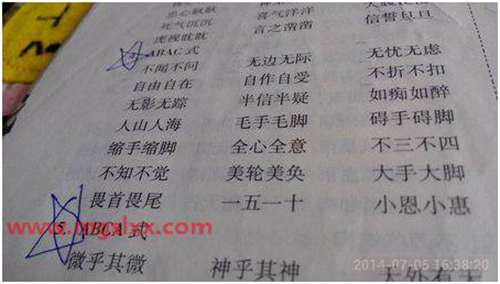 忠心耿耿
死气沉沉 喜气洋洋
虎视眈眈 言之凿凿 信誓旦旦
ABAC 式
不闻不问 无边无际 无忧无虑
自由自在 自作自受 不折不扣
无影无踪 半信半疑 如痴如醉
人山人海 毛手毛脚 碍手碍脚
缩手缩脚 全心全意 不三不四
不知不觉 美轮美奂 大手大脚
畏首畏尾 一五一十 小恩小惠
ABCA 式
微乎其微 神乎其神 天外有天
2014-07-05 16:38:20